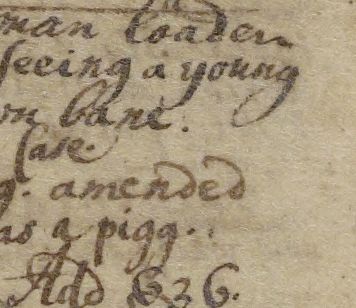 man loaden
seeing a young
on bank.
Case.
g. amended
as a pigg.
Add 636.